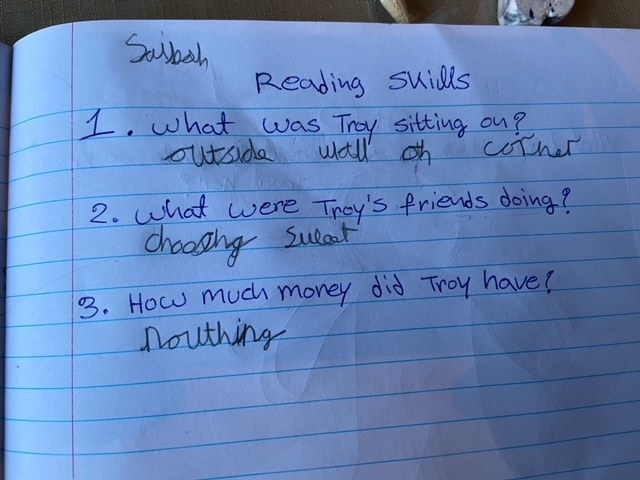 Saibah
Reading Skills
1. What was Troy sitting on?
outside wall on corner
2. What were Troy's friends doing?
choosing Sweat
3. How much money did Troy have?
Nouthing